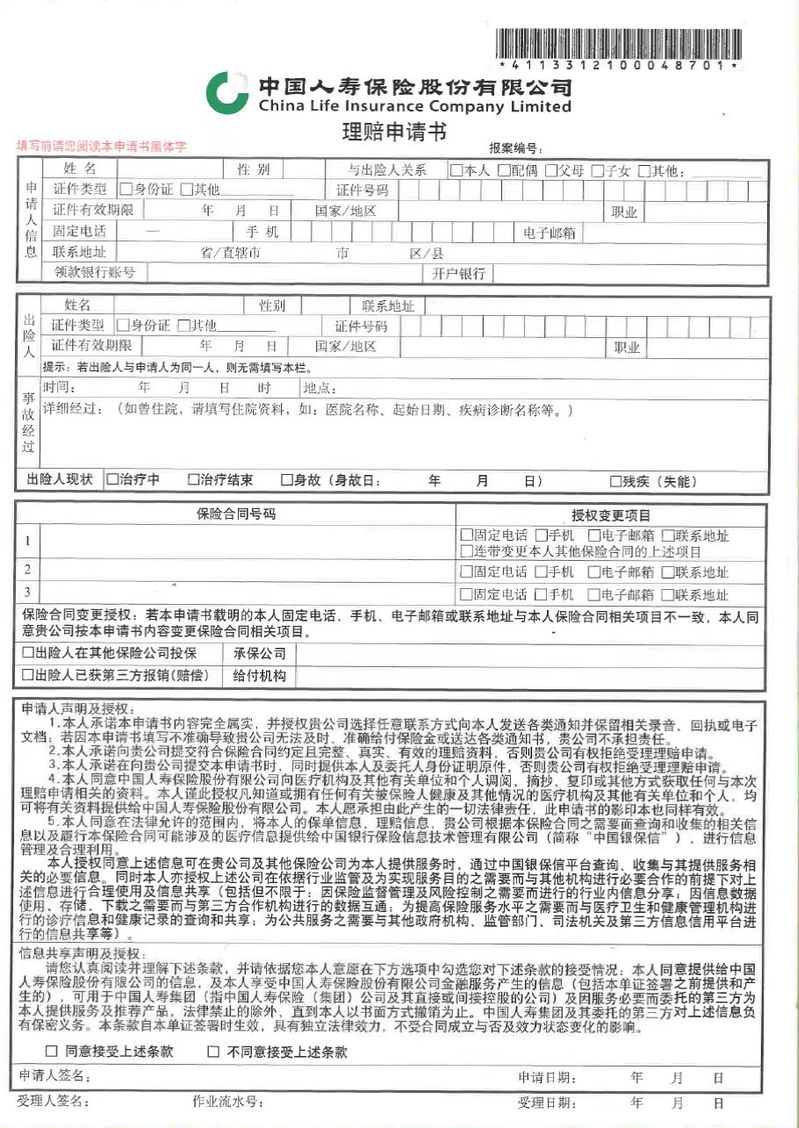 *4113312100048701*
中国人寿保险股份有限公司
China Life Insurance Company Limited
理赔申请书
填写前请您阅读本申请书黑体字
报案编号：
申请人信息
姓 名 性 别 与出险人关系 □本人 □配偶 □父母 □子女 □其他：
证件类型 □身份证 □其他 证件号码
证件有效期限 年 月 日 国家/地区 职业
固定电话 — 手 机 电子邮箱
联系地址 省/直辖市 市 区/县
领款银行账号 开户银行
出险人
姓名 性别 联系地址
证件类型 □身份证 □其他 证件号码
证件有效期限 年 月 日 国家/地区 职业
提示：若出险人与申请人为同一人，则无需填写本栏。
事故经过
时间： 年 月 日 时 地点：
详细经过：（如曾住院，请填写住院资料，如：医院名称、起始日期、疾病诊断名称等。）
出险人现状 □治疗中 □治疗结束 □身故（身故日： 年 月 日） □残疾（失能）
保险合同号码 授权变更项目
1 □固定电话 □手机 □电子邮箱 □联系地址
□连带变更本人其他保险合同的上述项目
2 □固定电话 □手机 □电子邮箱 □联系地址
3 □固定电话 □手机 □电子邮箱 □联系地址
保险合同变更授权：若本申请书载明的本人固定电话、手机、电子邮箱或联系地址与本人保险合同相关项目不一致，本人同
意贵公司按本申请书内容变更保险合同相关项目。
□出险人在其他保险公司投保 承保公司
□出险人已获第三方报销(赔偿) 给付机构
申请人声明及授权：
1.本人承诺本申请书内容完全属实，并授权贵公司选择任意联系方式向本人发送各类通知并保留相关录音、回执或电子
文档；若因本申请书填写不准确导致贵公司无法及时、准确给付保险金或送达各类通知书，贵公司不承担责任。
2.本人承诺向贵公司提交符合保险合同约定且完整、真实、有效的理赔资料，否则贵公司有权拒绝受理理赔申请。
3.本人承诺在向贵公司提交本申请书时，同时提供本人及委托人身份证明原件，否则贵公司有权拒绝受理理赔申请。
4.本人同意中国人寿保险股份有限公司向医疗机构及其他有关单位和个人调阅、摘抄、复印或其他方式获取任何与本次
理赔申请相关的资料。本人谨此授权凡知道或拥有任何有关被保险人健康及其他情况的医疗机构及其他有关单位和个人，均
可将有关资料提供给中国人寿保险股份有限公司。本人愿承担由此产生的一切法律责任，此申请书的影印本也同样有效。
5.本人同意在法律允许的范围内，将本人的保单信息、理赔信息，贵公司根据本保险合同之需要面查询和收集的相关信
息以及履行本保险合同可能涉及的医疗信息提供给中国银行保险信息技术管理有限公司（简称“中国银保信”），进行信息
管理及合理利用。
本人授权同意上述信息可在贵公司及其他保险公司为本人提供服务时，通过中国银保信平台查询、收集与其提供服务相
关的必要信息。同时本人亦授权上述公司在依据行业监管及为实现服务目的之需要而与其他机构进行必要合作的前提下对上
述信息进行合理使用及信息共享（包括但不限于：因保险监督管理及风险控制之需要而进行的行业内信息分享；因信息数据
使用、存储、下载之需要而与第三方合作机构进行的数据互通；为提高保险服务水平之需要而与医疗卫生和健康管理机构进
行的诊疗信息和健康记录的查询和共享；为公共服务之需要与其他政府机构、监管部门、司法机关及第三方信息信用平台进
行的信息共享等）。
信息共享声明及授权：
请您认真阅读并理解下述条款，并请依据您本人意愿在下方选项中勾选您对下述条款的接受情况：本人同意提供给中国
人寿保险股份有限公司的信息，及本人享受中国人寿保险股份有限公司金融服务产生的信息（包括本单证签署之前提供和产
生的），可用于中国人寿集团（指中国人寿保险（集团）公司及其直接或间接控股的公司）及因服务必要而委托的第三方为
本人提供服务及推荐产品，法律禁止的除外，直到本人以书面方式撤销为止。中国人寿集团及其委托的第三方对上述信息负
有保密义务。本条款自本单证签署时生效，具有独立法律效力，不受合同成立与否及效力状态变化的影响。
□ 同意接受上述条款 □ 不同意接受上述条款
申请人签名： 申请日期： 年 月 日
受理人签名： 作业流水号： 受理日期： 年 月 日